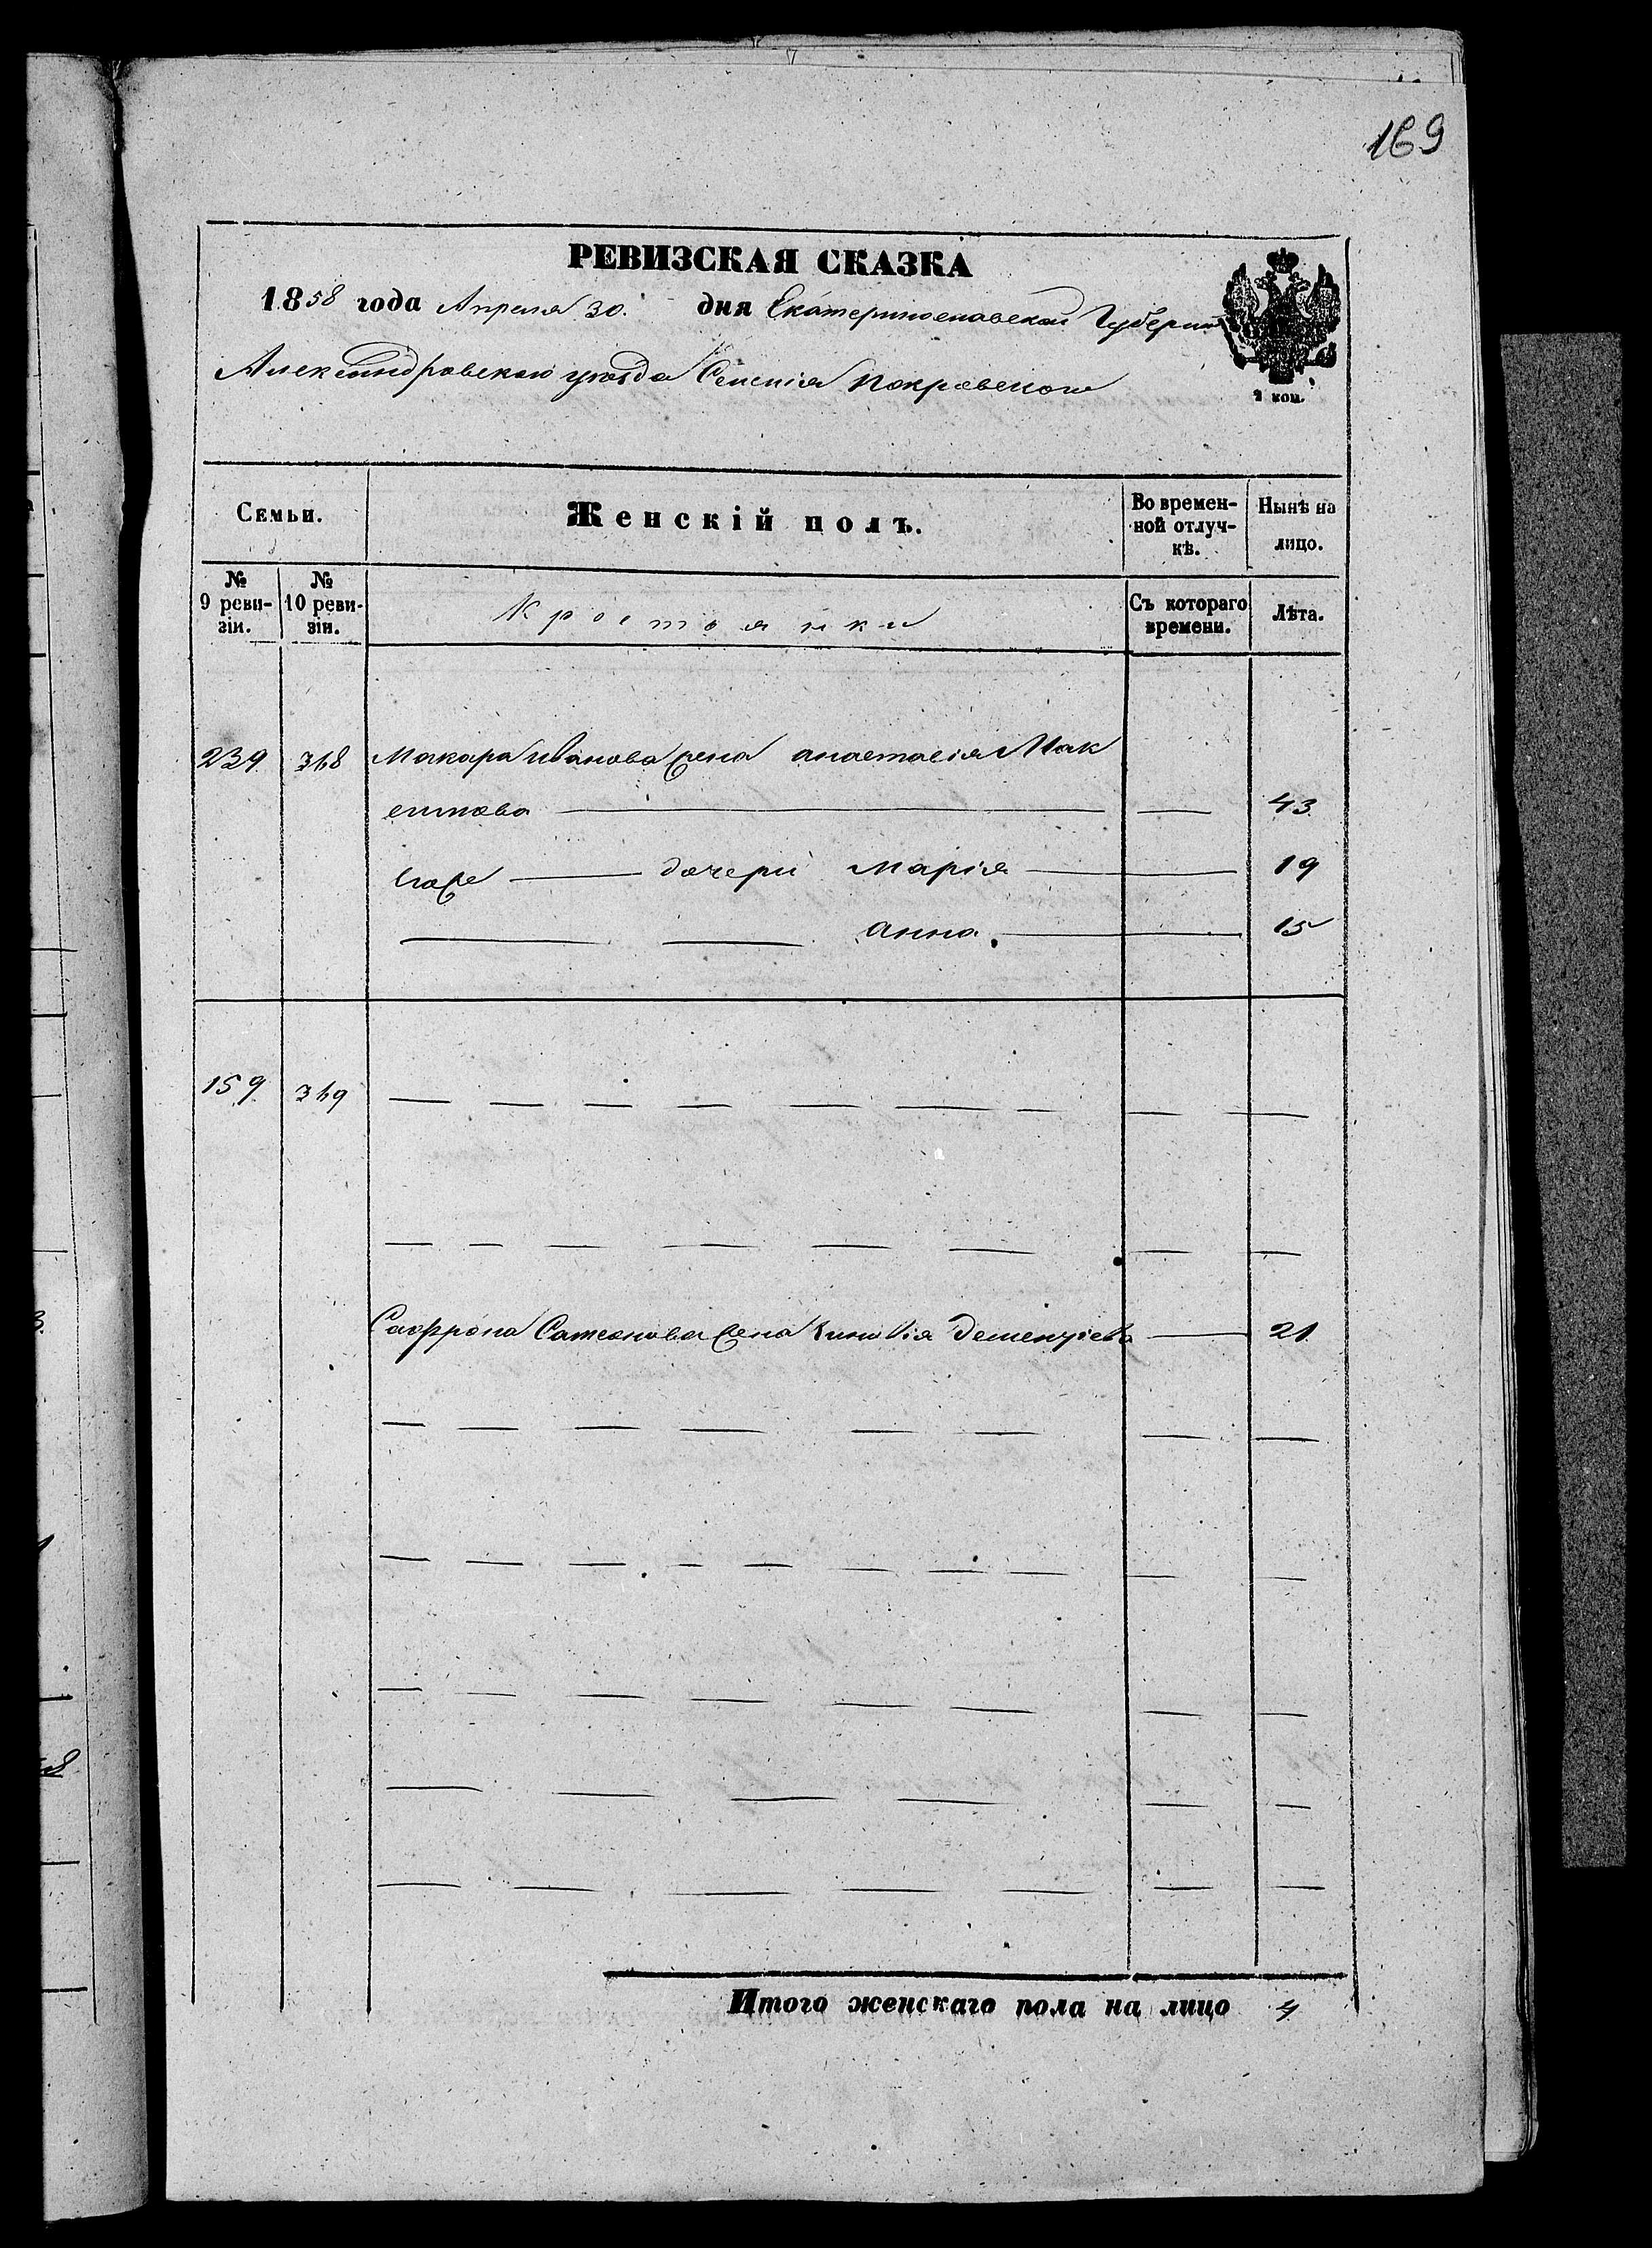 169
РЕВИЗСКАЯ СКАЗКА
1858 года Апреля 30. дня Екатеринославской Губернии
Александровскаго уезда Селенія Покровскаго
2 коп.
Семьи. Женскій полъ. Во временной отлучкѣ. Нынѣ на лицо.
№ 9 ревизіи. № 10 ревизіи. Крестьянки Съ котораго времени. Лѣта.
239 368 Макара Иванова жена анастасія Мак
симова — — 43
Егоже — дочери Марія — 19
— — анна. — 15
159 369 — — — — — — — — —
— — — — — — — —
Сафрона Самсонова жена Зиновія Дементіева — 21
— — — — — — — —
— — — — — — — — — —
— — — — — — — —
— — — — — —
— — — — — — —
Итого женскаго пола на лицо 4